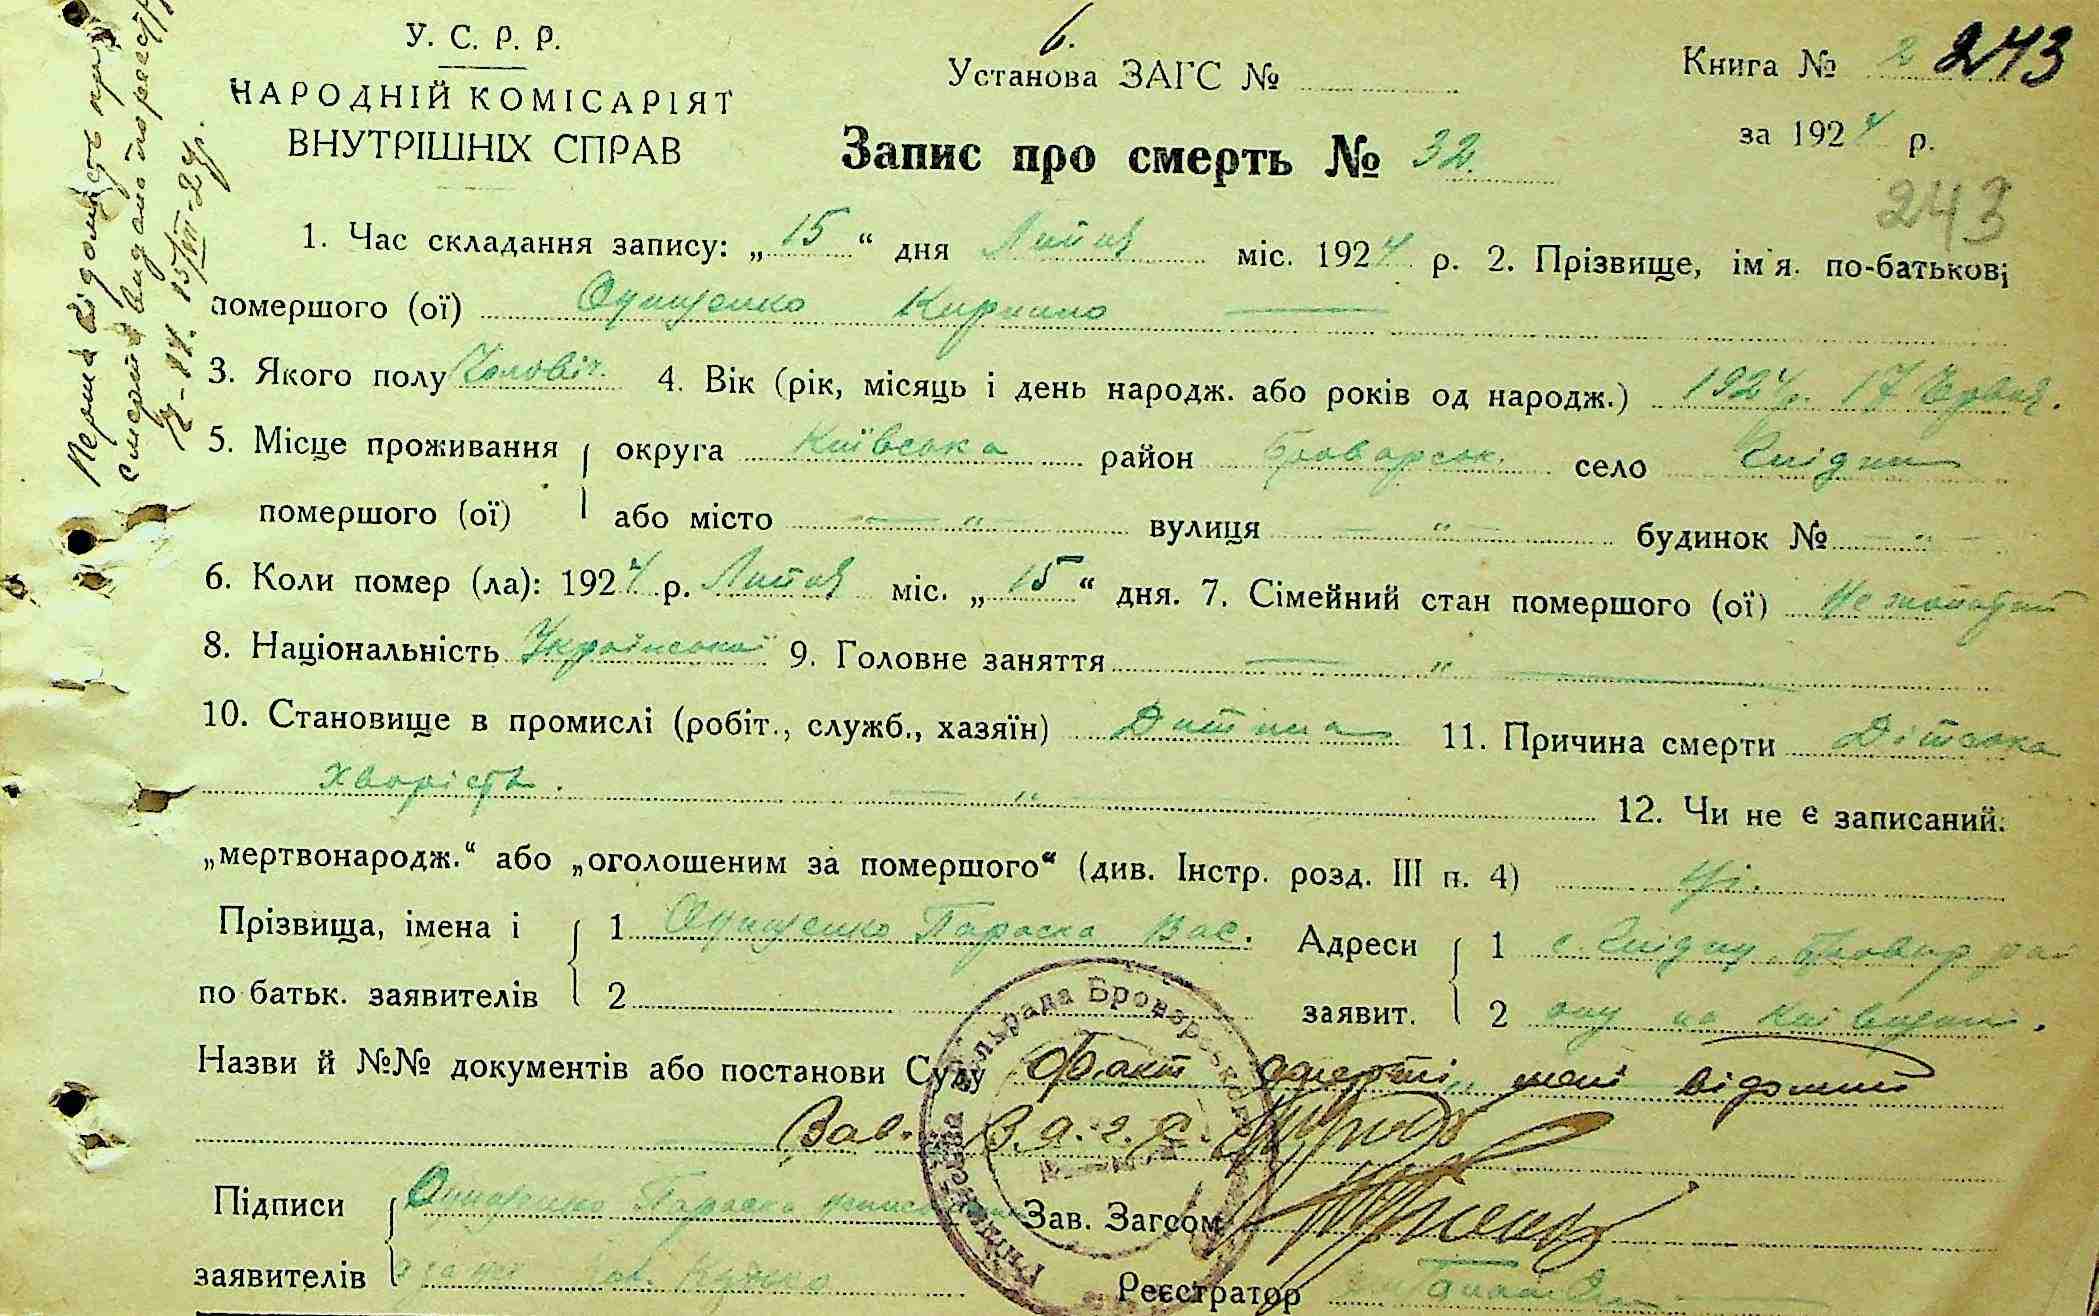 У. С. Р. Р.
НАРОДНІЙ КОМІСАРІЯТ
ВНУТРІШНІХ СПРАВ
6.
Установа ЗАГС №
Книга № 2 243
за 1924 р.
Запис про смерть № 32.
243
1. Час складання запису: „15“ дня Липня міс. 1924 р. 2. Прізвище, ім'я. по-батькові
помершого (ої) Онищенко Кирило
3. Якого полу Чоловіч. 4. Вік (рік, місяць і день народж. або років од народж.) 1924 р. 17 Червня.
5. Місце проживання округа Київська район Броварськ. село
помершого (ої) або місто — „ — вулиця — „ — будинок № — „ —
6. Коли помер (ла): 1924 р. Липня міс. „15“ дня. 7. Сімейний стан помершого (ої) Не жонатий
8. Національність Української 9. Головне заняття — „ —
10. Становище в промислі (робіт., служб., хазяїн) Дитина 11. Причина смерти Дітська
хворість. — „ — 12. Чи не є записаний.
„мертвонародж.“ або „оголошеним за помершого“ (див. Інстр. розд. III п. 4) Ні.
Прізвища, імена і 1 Онищенко Параска Вас. Адреси 1 с. Бровар. ра
по батьк. заявителів 2 заявит. 2 ону на Київщині.
Назви й №№ документів або постанови Суду Факт смерті мені відомий
Зав.
Підписи Онищенко Параска Зав. Загсом
заявителів Реєстратор